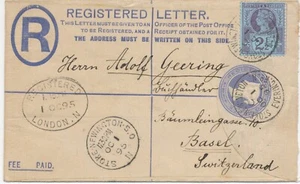 REGISTERED LETTER.
THIS LETTER MUST BE GIVEN TO AN
OFFICER OF THE POST OFFICE
TO BE REGISTERED, AND A
RECEIPT OBTAINED FOR IT
R
THE ADDRESS MUST BE WRITTEN ON THIS SIDE.
2½
Herrn Adolf Geering
Buchhändler
Bäumleingasse 10
Basel
Switzerland
REGISTERED
OC 95
LONDON. N
STOKE NEWINGTON
OC 1
95
FEE PAID.